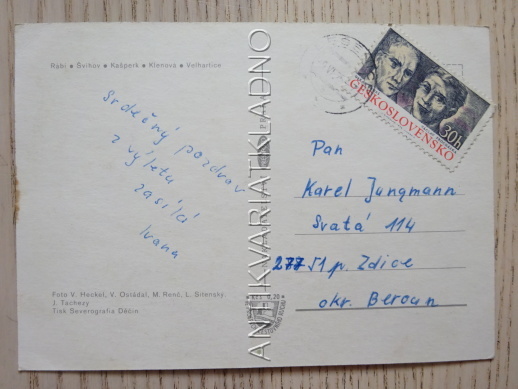 Rabí • Švihov • Kašperk • Klenova • Velhartice
Srdečný pozdrav
z výletu
zasílá
Ivana
Foto V. Heckel, V. Osvádal, M. Renč, L. Sitenský,
J. Tachezy
Tisk Severografia Děčín
ANTIKVARIATKLADNO
ČESKOSLOVENSKO
30h
Pan
Karel Jungmann
Svatá 114
27751 p. Zdice
okr. Beroun